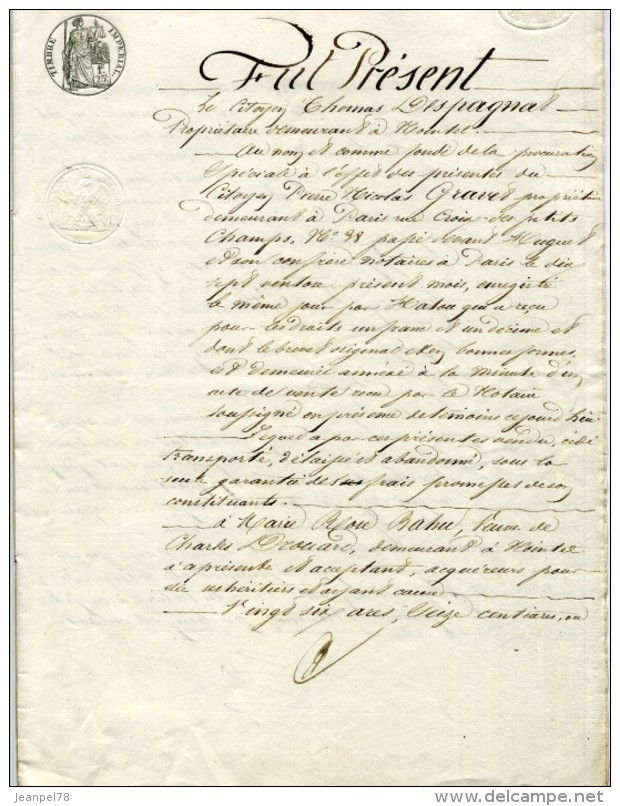 TIMBRE IMPERIAL
1F 25C
Fut Présent
Le Citoyen Thomas Despagnat
Propriétaire demeurant à Nointel.
Au nom et comme fondé de la procuration
Spéciale à l'effet des présentes du
Citoyen Pierre Nicolas Gravet propriétaire
demeurant à Paris rue Croix-des petits
Champs, No. 98 passé devant Huguet
et son confrère notaires à Paris le dix
sept ventose présent mois, enregistré
le même jour par Hatou qui a reçu
pour les droits un franc et un decime et
dont le brevet original en bonnes formes,
est demeurée annéxé à la minute d'un
acte de vente reçu par le Notaire
soussigné en présence de témoins ce jourd'hui
Lequel a par ces présentes vendu, cédé
transporté, délaissé et abandonné, sous la
seule garantie des frais promesses de son
constituant.
à Marie Rahu, veuve de
Charles Drouard, demeurant à Nointel
à ce présente et acceptant, acquéreurs pour
elle ses héritiers et ayant cause.
Vingt six ares, Seize centiares, ou
jeanpel78
www.delcampe.net